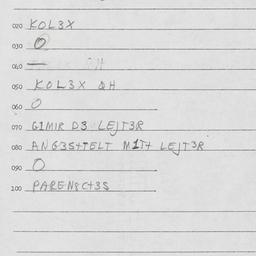 020 KOL3X
030 O
040 —
050 KOL3X QH
060 O
070 G1MIR D3 LEJT3R
080 ANG3STTELT M1T+ LEJT3R
090 O
100 PARENSCT3S